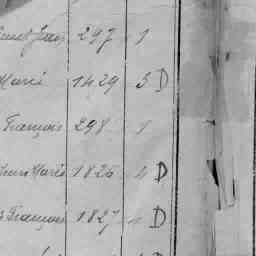 Jean 297 1
Marie 1429 3 D
François 298 1
Marie 1826 4 D
François 1827 D